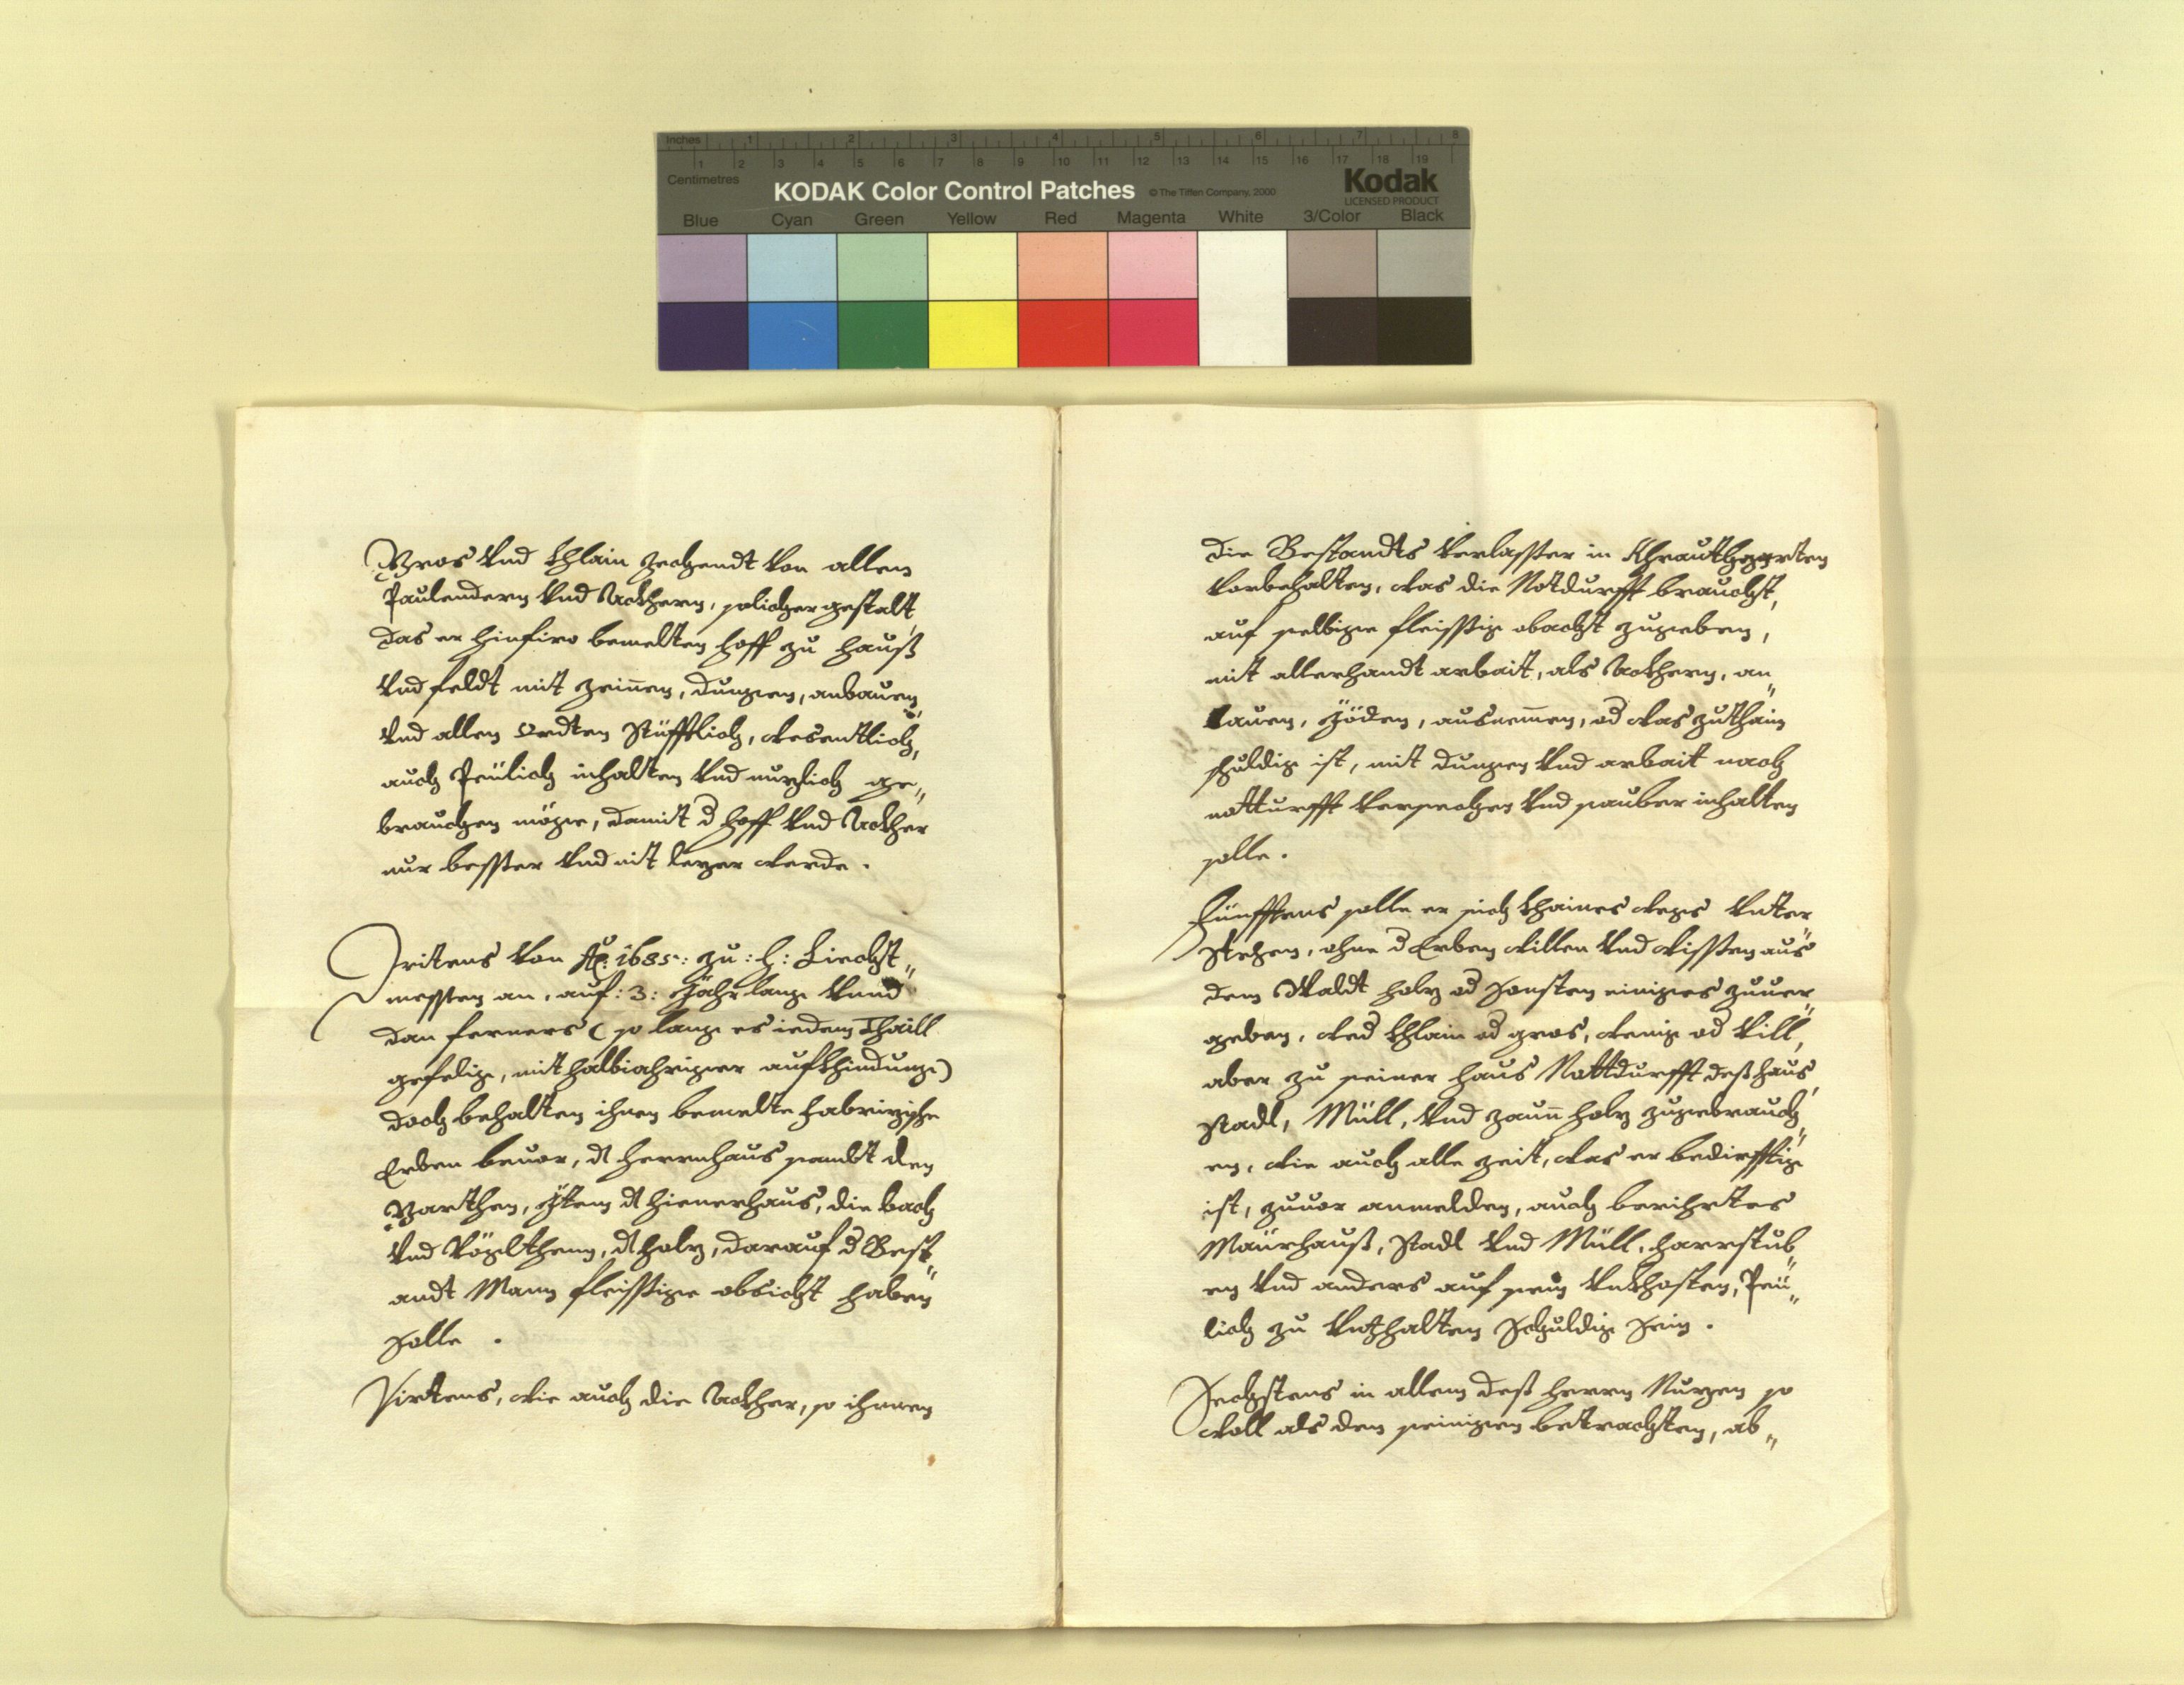 Inches 1 2 3 4 5 6 7 8
1 2 3 4 5 6 7 8 9 10 11 12 13 14 15 16 17 18 19
Centimetres
KODAK Color Control Patches © The Tiffen Company, 2000 Kodak
LICENSED PRODUCT
Blue Cyan Green Yellow Red Magenta White 3/Color Black
Gros Vnd Khlain Zechendt Von allen
Paulendern Vnd Ackhern, solicher gestalt,
das er hinfiro bemelten hoff zu hauß
Vnd feldt mit zeinen, dungen, anbauen,
Vnd allen Ordten Stüfftlich, wesentlich,
auch Peülich inhalten Vnd nuzlich ge„
brauchen möge, damit d hoff Vnd Ackher
nur besser Vnd nit lezer werde.
Dritens Von Ao: 1685: zu: h: Liecht„
messen an, auf: 3: Jahr lang Vnnd
dan ferners (so lang es iedem Thaill
gefelig, mit halbiahriger aufkhindung)
doch behalten ihnen bemelte
Erben beuor, dz herrnhaus sambt den
Garthen, Jtem dz hienerhaus, die bach
Vnd Vöglthenn, dz holz, darauf d Best„
andt Mann fleissige obsicht haben
solle.
Virtens, wie auch die Ackher, so ihnen
die Bestandts Verlasser in Khrauthgarten
Vorbehalten, was die Notdurfft braucht,
auf selbige fleissige obacht zugeben,
mit allerhandt arbait, als Ackhern, an„
bauen, Jöden, ausnemen, od was zuthain
schuldig ist, mit dungen Vnd arbait nach
notturfft Versechen Vnd sauber inhalten
solle.
Fünfftens solle er sich khaines wegs Vnter„
stehen, ohne d Erben willen Vnd wissen aus
dem Waldt holz od sonsten einiges zuuer„
geben, wed khlain od gros, wenig od Vill,
aber zu seiner haus Nottdurfft deß haus,
stadl, Müll, Vnd zaun holz zugebrauch„
en, wie auch alle zeit, was er bedirfftig
ist, zuuor anmelden, auch berihrtes
Maürhauß, stadl Vnd Müll, harrstub„
en Vnd anders auf sein Vnkhosten, Peü„
lich zu Vnthalten schuldig sein.
Sechstens in allem deß herrn Nuzen so
woll als den seinigen betrachten, ab„